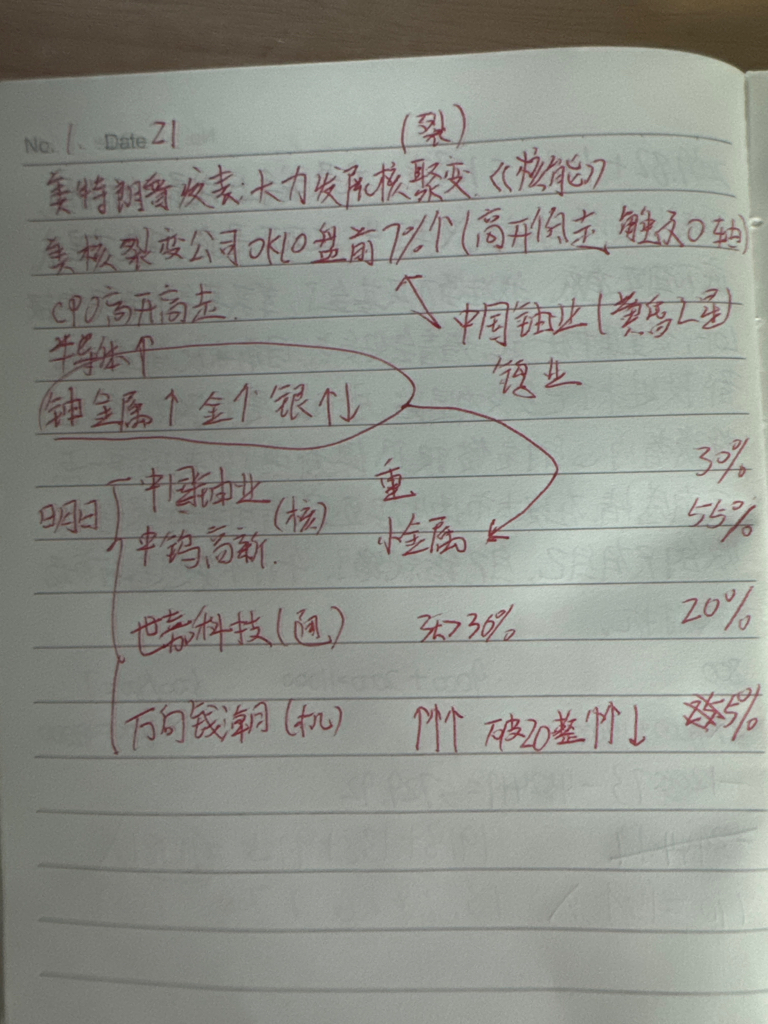 No. 1. Date 21
(裂)
美特朗普发表:大力发展核聚变《核能》
美核裂变公司OKLO盘前7%↑(高开低走,触及0轴)
CPO高开高走.
中国铀业(黄
钨业
半导体↑
铀金属↑金↑银↑↓
30%
明日 中国铀业 重
(核) 55%
中钨高新. 小金属
世嘉科技(通) 买>30% 20%
万向钱潮(机) ↑↑↑ 破20整↑↑↓ 5%